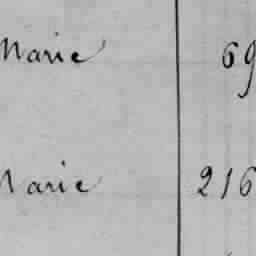 Marie 69
Marie 216